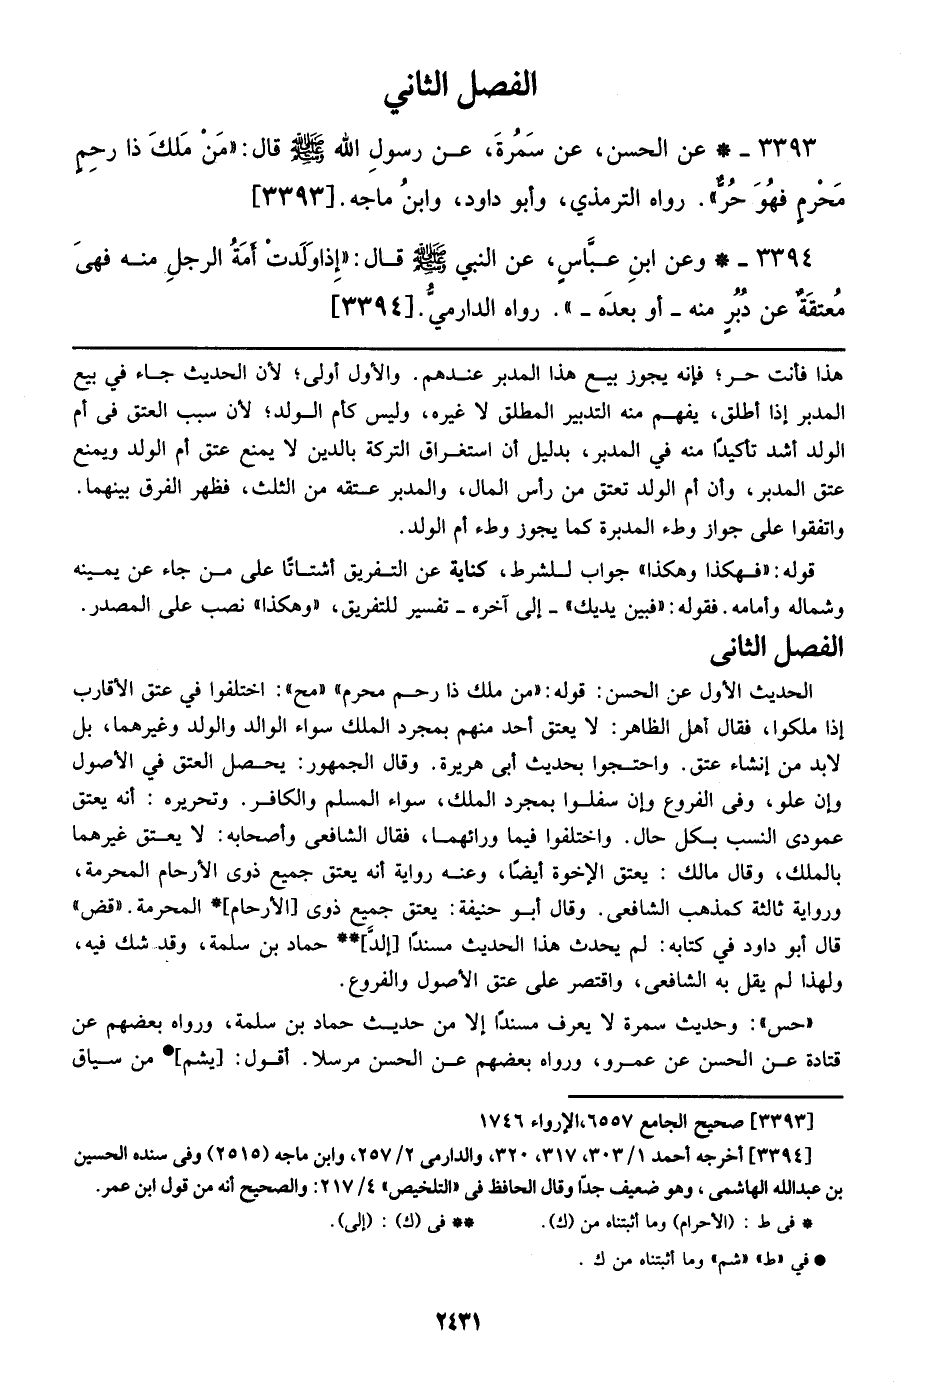 الفصل الثاني
٣٣٩٣ ـ * عن الحسن، عن سَمُرةَ، عـن رسولِ الله ﷺ قال: «مَنْ مَلَكَ ذا رحِمٍ
مَحْرمٍ فهُوَ حُرٌّ». رواه الترمذي، وأبو داود، وابنُ ماجه. [٣٣٩٣]
٣٣٩٤ ـ * وعن ابنِ عـبَّاسٍ، عن النبي ﷺ قـال: «إِذاوَلَدتْ أَمَةُ الرجلِ منـه فهىَ
مُعتقَةٌ عن دُبُرٍ منه ـ أو بعدَه ـ ». رواه الدارميُّ. [٣٣٩٤]
هذا فأنت حـر؛ فإنه يجوز بيـع هذا المدبر عنـدهم. والأول أولى؛ لأن الحديث جـاء في بيع
المدبر إذا أطلق، يفهـم منه التدبير المطلق لا غيره، وليس كأم الـولد؛ لأن سبب العتق فى أم
الولد أشد تأكيدًا منه في المدبر، بدليل أن استغـراق التركة بالدين لا يمنع عتق أم الولد ويمنع
عتق المدبر، وأن أم الولد تعتق من رأس المال، والمدبر عـتقه من الثلث، فظهر الفرق بينهما.
واتفقوا على جواز وطء المدبرة كما يجوز وطء أم الولد.
قوله: «فـهكذا وهكذا» جواب لـلشرط، كناية عن التـفريق أشتـاتًا على مـن جاء عن يمـينه
وشماله وأمامه. فقوله: «فبين يديك» ـ إلى آخره ـ تفسير للتفريق، «وهكذا» نصب على المصدر.
الفصل الثانى
الحديث الأول عن الحسن: قوله: «من ملك ذا رحـم محرم» «مح»: اختلفوا في عتق الأقارب
إذا ملكوا، فقال أهل الظاهر: لا يعتق أحد منهم بمجرد الملك سواء الوالد والولد وغيرهما، بل
لابد من إنشاء عتق. واحتـجوا بحديث أبى هريرة. وقال الجمهور: يحـصل العتق في الأصول
وإن علو، وفى الفروع وإن سفلـوا بمجرد الملك، سواء المسلم والكافـر. وتحريره : أنه يعتق
عمودى النسب بـكل حال. واختلفوا فيما ورائهمـا، فقال الشافعى وأصحابه: لا يعـتق غيرهما
بالملك، وقال مالك : يعتق الإخوة أيضًا، وعنـه رواية أنه يعتق جميع ذوى الأرحام المحرمة،
ورواية ثالثة كمذهب الشافعى. وقال أبـو حنيفة: يعتق جميع ذوى [الأرحام]* المحرمة. «قض»
قال أبو داود في كتابه: لم يحدث هذا الحديث مسندًا [إلدَّ]** حماد بن سلمة، وقد شك فيه،
ولهذا لم يقل به الشافعى، واقتصر على عتق الأصول والفروع.
«حس»: وحديث سمرة لا يعرف مسندًا إلا من حديـث حماد بن سلمة، ورواه بعضهم عن
قتادة عـن الحسن عن عمـرو، ورواه بعضهم عـن الحسن مرسلا. أقـول: [يشم]● من سـياق
[٣٣٩٣] صحيح الجامع ٦٥٥٧،الإرواء ١٧٤٦
[٣٣٩٤] أخرجه أحمد ١/ ٣٠٣، ٣١٧، ٣٢٠، والدارمى ٢/ ٢٥٧، وابن ماجه (٢٥١٥) وفى سنده الحسين
بن عبدالله الهاشمى، وهو ضعيف جدًا وقال الحافظ فى «التلخيص» ٤/ ٢١٧: والصحيح أنه من قول ابن عمر.
* فى ط : (الأحرام) وما أثبتناه من (ك). ** فى (ك) : (إلى).
● في «ط» «شم» وما أثبتناه من ك .
٢٤٣١